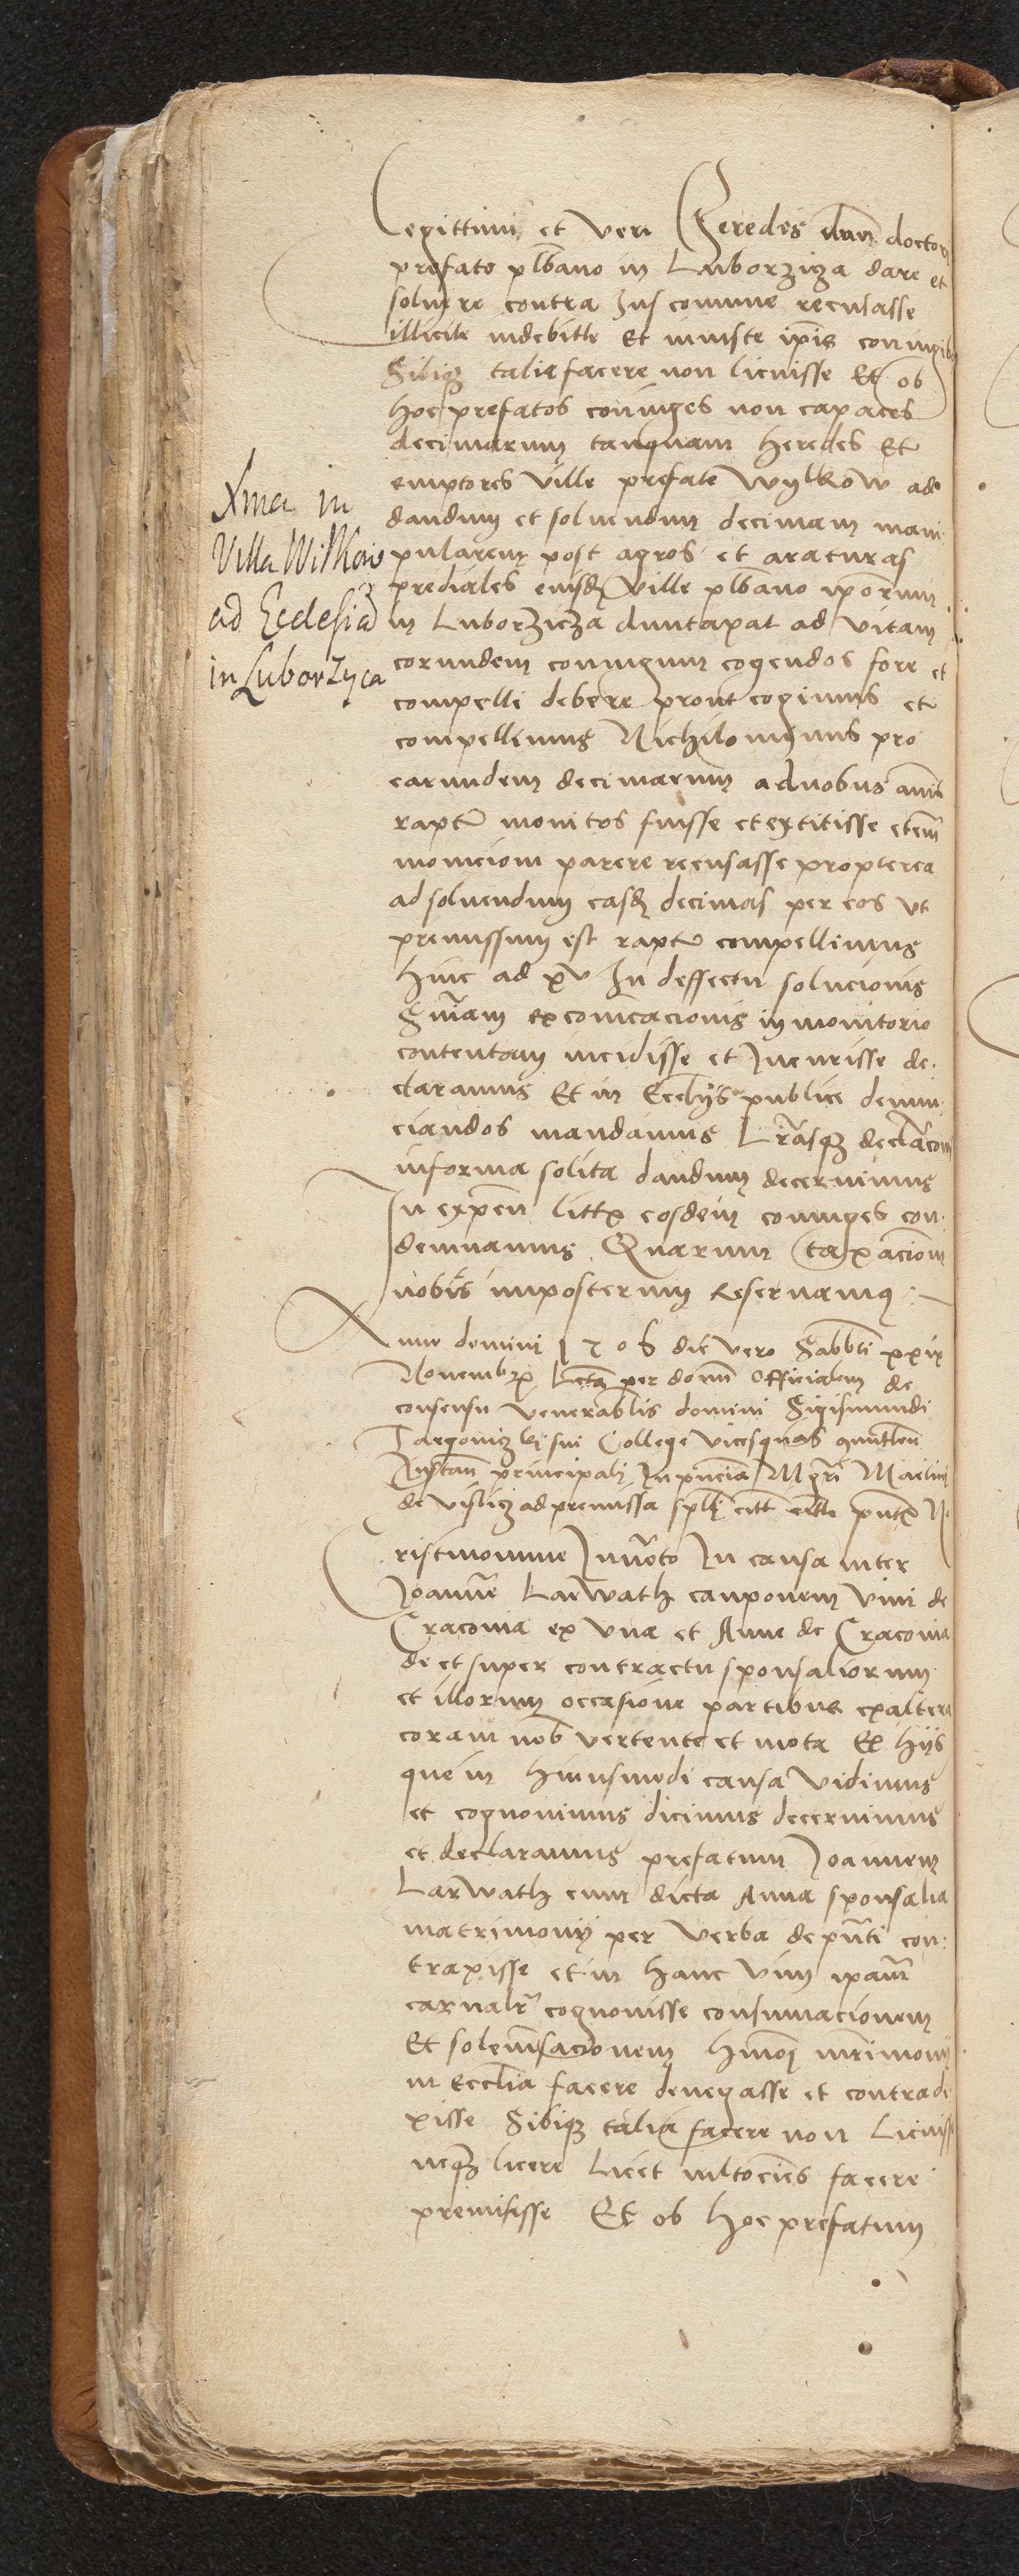 Legittimi et veri Heredes dnm doctori
prefato plbano in Luborzicza dare et
soluere contra Jus comune recusasse
illicite indebitte Et iniuste ipis coniugibus
Sibiqz talia facere non licuisse Et ob
hoc prefatos coniuges non capaces
decimarum tanquam heredes Et
emptores ville prefate Wylkow ad
dandum et soluendum decimam mani
pularem post agros et araturas
prediales eiusdem ville plbano ipsorum
in Luborzicza duntaxat ad vitam
eorundem coniugum cogendos fore et
compelli debere prout cogimus et
compellimus Nichilominus pro
earundem decimarum a duobus annis
raptu monitos fuisse et extitisse etem
monicioni parere recusasse propterea
ad soluendum easdem decimas per eos ut
premissum est raptu compellimus
hinc ad xv In deffectu solucionis
Sniam excoicacionis in monitorio
contentam incidisse et Incurisse de
claramus Et in Ecclijs publice denun
ciandos mandamus Lrasqz declacom
in forma solita dandum decernimus
In expen littx eosdem coniuges con
demnamus Quarum taxacionem
nobis imposterum reseruamus
Xma in
Villa Wilkow
ad Ecclesia
in Luborzyca
Anno domini 1506 die vero Sabbti xxix
Nouembrx lecta per domm Officialem de
consensu venerablis domini Sigismundi
Targowiczki sui College vicesqz
Instan principalj In pncia Mgri Martini
de vislicz ad premissa splr citt
Cristi nomine Inuocato In causa inter
Joannem Larwath cauponem vini de
Cracouia ex vna et Anne de Cracouia
de et super contractu sponsaliorum
et illorum occasione partibus ex altera
coram nob vertente et mota Ex hijs
que in huiusmodi causa vidimus
et cognouimus dicimus decernimus
et declaramus prefatum Joannem
Larwath cum dicta Anna sponsalia
matrimonij per verba de pnti con
traxisse et in hanc vim ipam
carnalr cognouisse consumacionem
Et solemsacionem hmoi mrimonij
in Ecclia facere denegasse et contradi
xisse Sibiqz talia facere non Licuisse
neqz licere Licet multociens facere
premisisse Et ob hoc prefatum